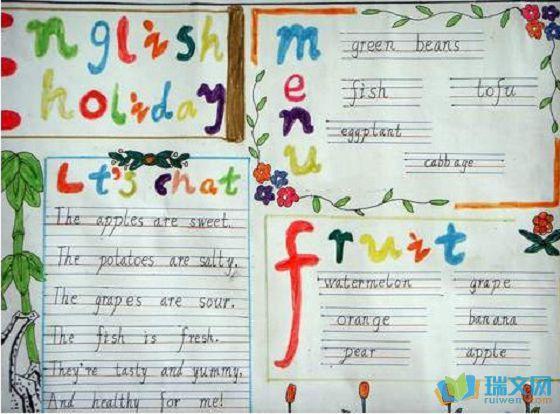 English
holiday
Let's chat
The apples are sweet.
The potatoes are salty,
The grapes are sour.
The fish is fresh.
They're tasty and yummy,
And healthy for me!
menu
green beans
fish
tofu
eggplant
cabbage
fruit
watermelon
grape
orange
banana
pear
apple
瑞文网
ruiwen.com